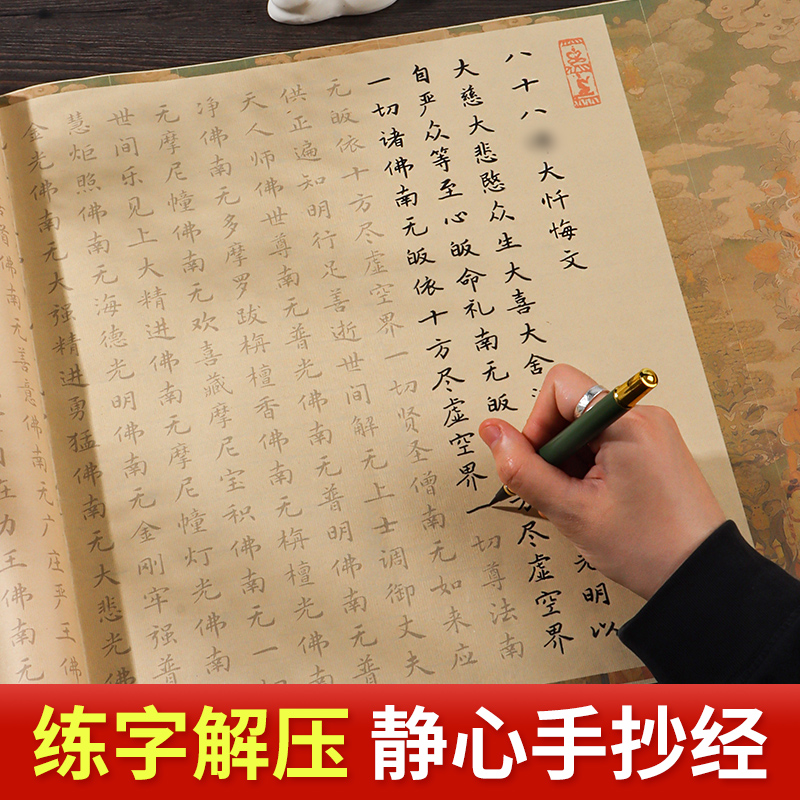 八十八 大忏悔文
大慈大悲愍众生大喜大舍 光明以
自严众等至心皈命礼南无皈 方尽虚空界
一切诸佛南无皈依十方尽虚空界一切尊法南
无皈依十方尽虚空界一切贤圣僧南无如来应
供正遍知明行足善逝世间解无上士调御丈夫
天人师佛世尊南无普光佛南无普明佛南无普
净佛南无多摩罗跋栴檀香佛南无栴檀光佛南
无摩尼幢佛南无欢喜藏摩尼宝积佛南无一
世间乐见上大精进佛南无摩尼幢灯光佛南
慧炬照佛南无海德光明佛南无金刚牢强普
金光佛南无大强精进勇猛佛南无大悲光佛
佛南无善意佛南无广庄严王佛
力王佛南无
练字解压 静心手抄经